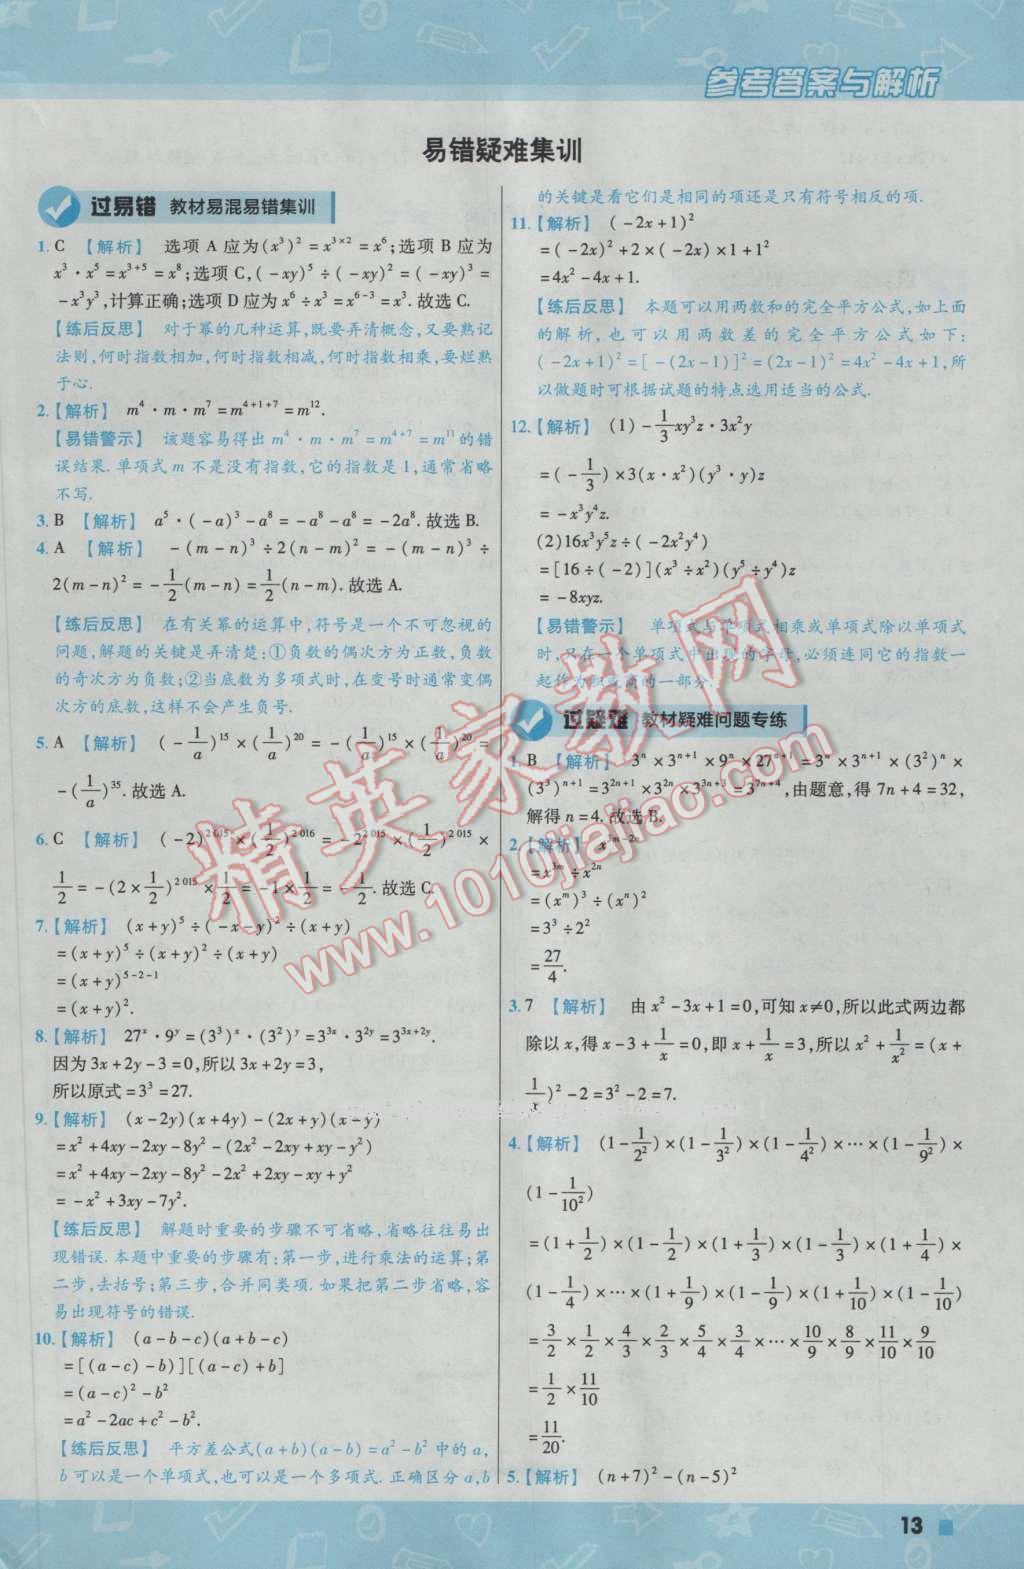 参考答案与解析
易错疑难集训
过易错 教材易混易错集训
1. C 【解析】 选项 A 应为(x³)² = x³ˣ² = x⁶;选项 B 应为
x³·x⁵ = x³⁺⁵ = x⁸;选项 C,(-xy)⁵÷(-xy)² = (-xy)³ =
-x³y³,计算正确;选项 D 应为 x⁶÷x³ = x⁶⁻³ = x³.故选 C.
【练后反思】 对于幂的几种运算,既要弄清概念,又要熟记
法则,何时指数相加,何时指数相减,何时指数相乘,要烂熟
于心.
2.【解析】 m⁴·m·m⁷ = m⁴⁺¹⁺⁷ = m¹².
【易错警示】 该题容易得出 m⁴·m·m⁷ = m⁴⁺⁷ = m¹¹ 的错
误结果.单项式 m 不是没有指数,它的指数是 1,通常省略
不写.
3. B 【解析】 a⁵·(-a)³-a⁸ = -a⁸-a⁸ = -2a⁸.故选 B.
4. A 【解析】 -(m-n)³÷2(n-m)² = -(m-n)³÷
2(m-n)² = -1/2(m-n) = 1/2(n-m).故选 A.
【练后反思】 在有关幂的运算中,符号是一个不可忽视的
问题,解题的关键是弄清楚:①负数的偶次方为正数,负数
的奇次方为负数;②当底数为多项式时,在变号时通常变偶
次方的底数,这样不会产生负号.
5. A 【解析】 (-1/a)¹⁵×(1/a)²⁰ = -(1/a)¹⁵×(1/a)²⁰ =
-(1/a)³⁵.故选 A.
6. C 【解析】 (-2)²⁰¹⁵×(1/2)²⁰¹⁶ = -2²⁰¹⁵×(1/2)²⁰¹⁵×
1/2 = -(2×1/2)²⁰¹⁵×1/2 = -1×1/2 = -1/2.故选 C.
7.【解析】 (x+y)⁵÷(-x-y)²÷(x+y)
=(x+y)⁵÷(x+y)²÷(x+y)
=(x+y)⁵⁻²⁻¹
=(x+y)².
8.【解析】 27ˣ·9ʸ = (3³)ˣ·(3²)ʸ = 3³ˣ·3²ʸ = 3³ˣ⁺²ʸ.
因为 3x+2y-3=0,所以 3x+2y=3,
所以原式=3³=27.
9.【解析】 (x-2y)(x+4y)-(2x+y)(x-y)
=x²+4xy-2xy-8y²-(2x²-2xy+xy-y²)
=x²+4xy-2xy-8y²-2x²+2xy-xy+y²
=-x²+3xy-7y².
【练后反思】 解题时重要的步骤不可省略,省略往往易出
现错误.本题中重要的步骤有:第一步,进行乘法的运算;第
二步,去括号;第三步,合并同类项.如果把第二步省略,容
易出现符号的错误.
10.【解析】 (a-b-c)(a+b-c)
=[(a-c)-b)][(a-c)+b]
=(a-c)²-b²
=a²-2ac+c²-b².
【练后反思】 平方差公式(a+b)(a-b)=a²-b² 中的 a,
b 可以是一个单项式,也可以是一个多项式.正确区分 a,b
的关键是看它们是相同的项还是只有符号相反的项.
11.【解析】 (-2x+1)²
=(-2x)²+2×(-2x)×1+1²
=4x²-4x+1.
【练后反思】 本题可以用两数和的完全平方公式,如上面
的解析,也可以用两数差的完全平方公式如下:
(-2x+1)²=[-(2x-1)]²=(2x-1)²=4x²-4x+1,所
以做题时可根据试题的特点选用适当的公式.
12.【解析】 (1)-1/3xy³z·3x²y
=(-1/3)×3(x·x²)(y³·y)z
=-x³y⁴z.
(2)16x³y⁵z÷(-2x²y⁴)
=[16÷(-2)](x³÷x²)(y⁵÷y⁴)z
=-8xyz.
【易错警示】 单项式与单项式相乘或单项式除以单项式
时,只在一个单项式中出现的字母,必须连同它的指数一
起作为积或商的一部分.
过疑难 教材疑难问题专练
1. B 【解析】 3ⁿ×3ⁿ⁺¹×9ⁿ×27ⁿ⁺¹=3ⁿ×3ⁿ⁺¹×(3²)ⁿ×
(3³)ⁿ⁺¹=3²ⁿ⁺¹×3²ⁿ×3³ⁿ⁺³=3⁷ⁿ⁺⁴,由题意,得 7n+4=32,
解得 n=4.故选 B.
2.【解析】 x³ᵐ⁻²ⁿ
=x³ᵐ÷x²ⁿ
=(xᵐ)³÷(xⁿ)²
=3³÷2²
=27/4.
3. 7 【解析】 由 x²-3x+1=0,可知 x≠0,所以此式两边都
除以 x,得 x-3+1/x=0,即 x+1/x=3,所以 x²+1/x²=(x+
1/x)²-2=3²-2=7.
4.【解析】 (1-1/2²)×(1-1/3²)×(1-1/4²)×…×(1-1/9²)×
(1-1/10²)
=(1+1/2)×(1-1/2)×(1+1/3)×(1-1/3)×(1+1/4)×
(1-1/4)×…×(1+1/9)×(1-1/9)×(1+1/10)×(1-1/10)
=3/2×1/2×4/3×2/3×5/4×3/4×…×10/9×8/9×11/10×9/10
=1/2×11/10
=11/20.
5.【解析】 (n+7)²-(n-5)²
精英家教网
www.1010jiajiao.com
13